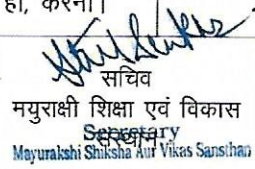 हो, करना।
सचिव
मयुराक्षी शिक्षा एवं विकास
संस्थान
Secretary
Mayurakshi Shiksha Aur Vikas Sansthan